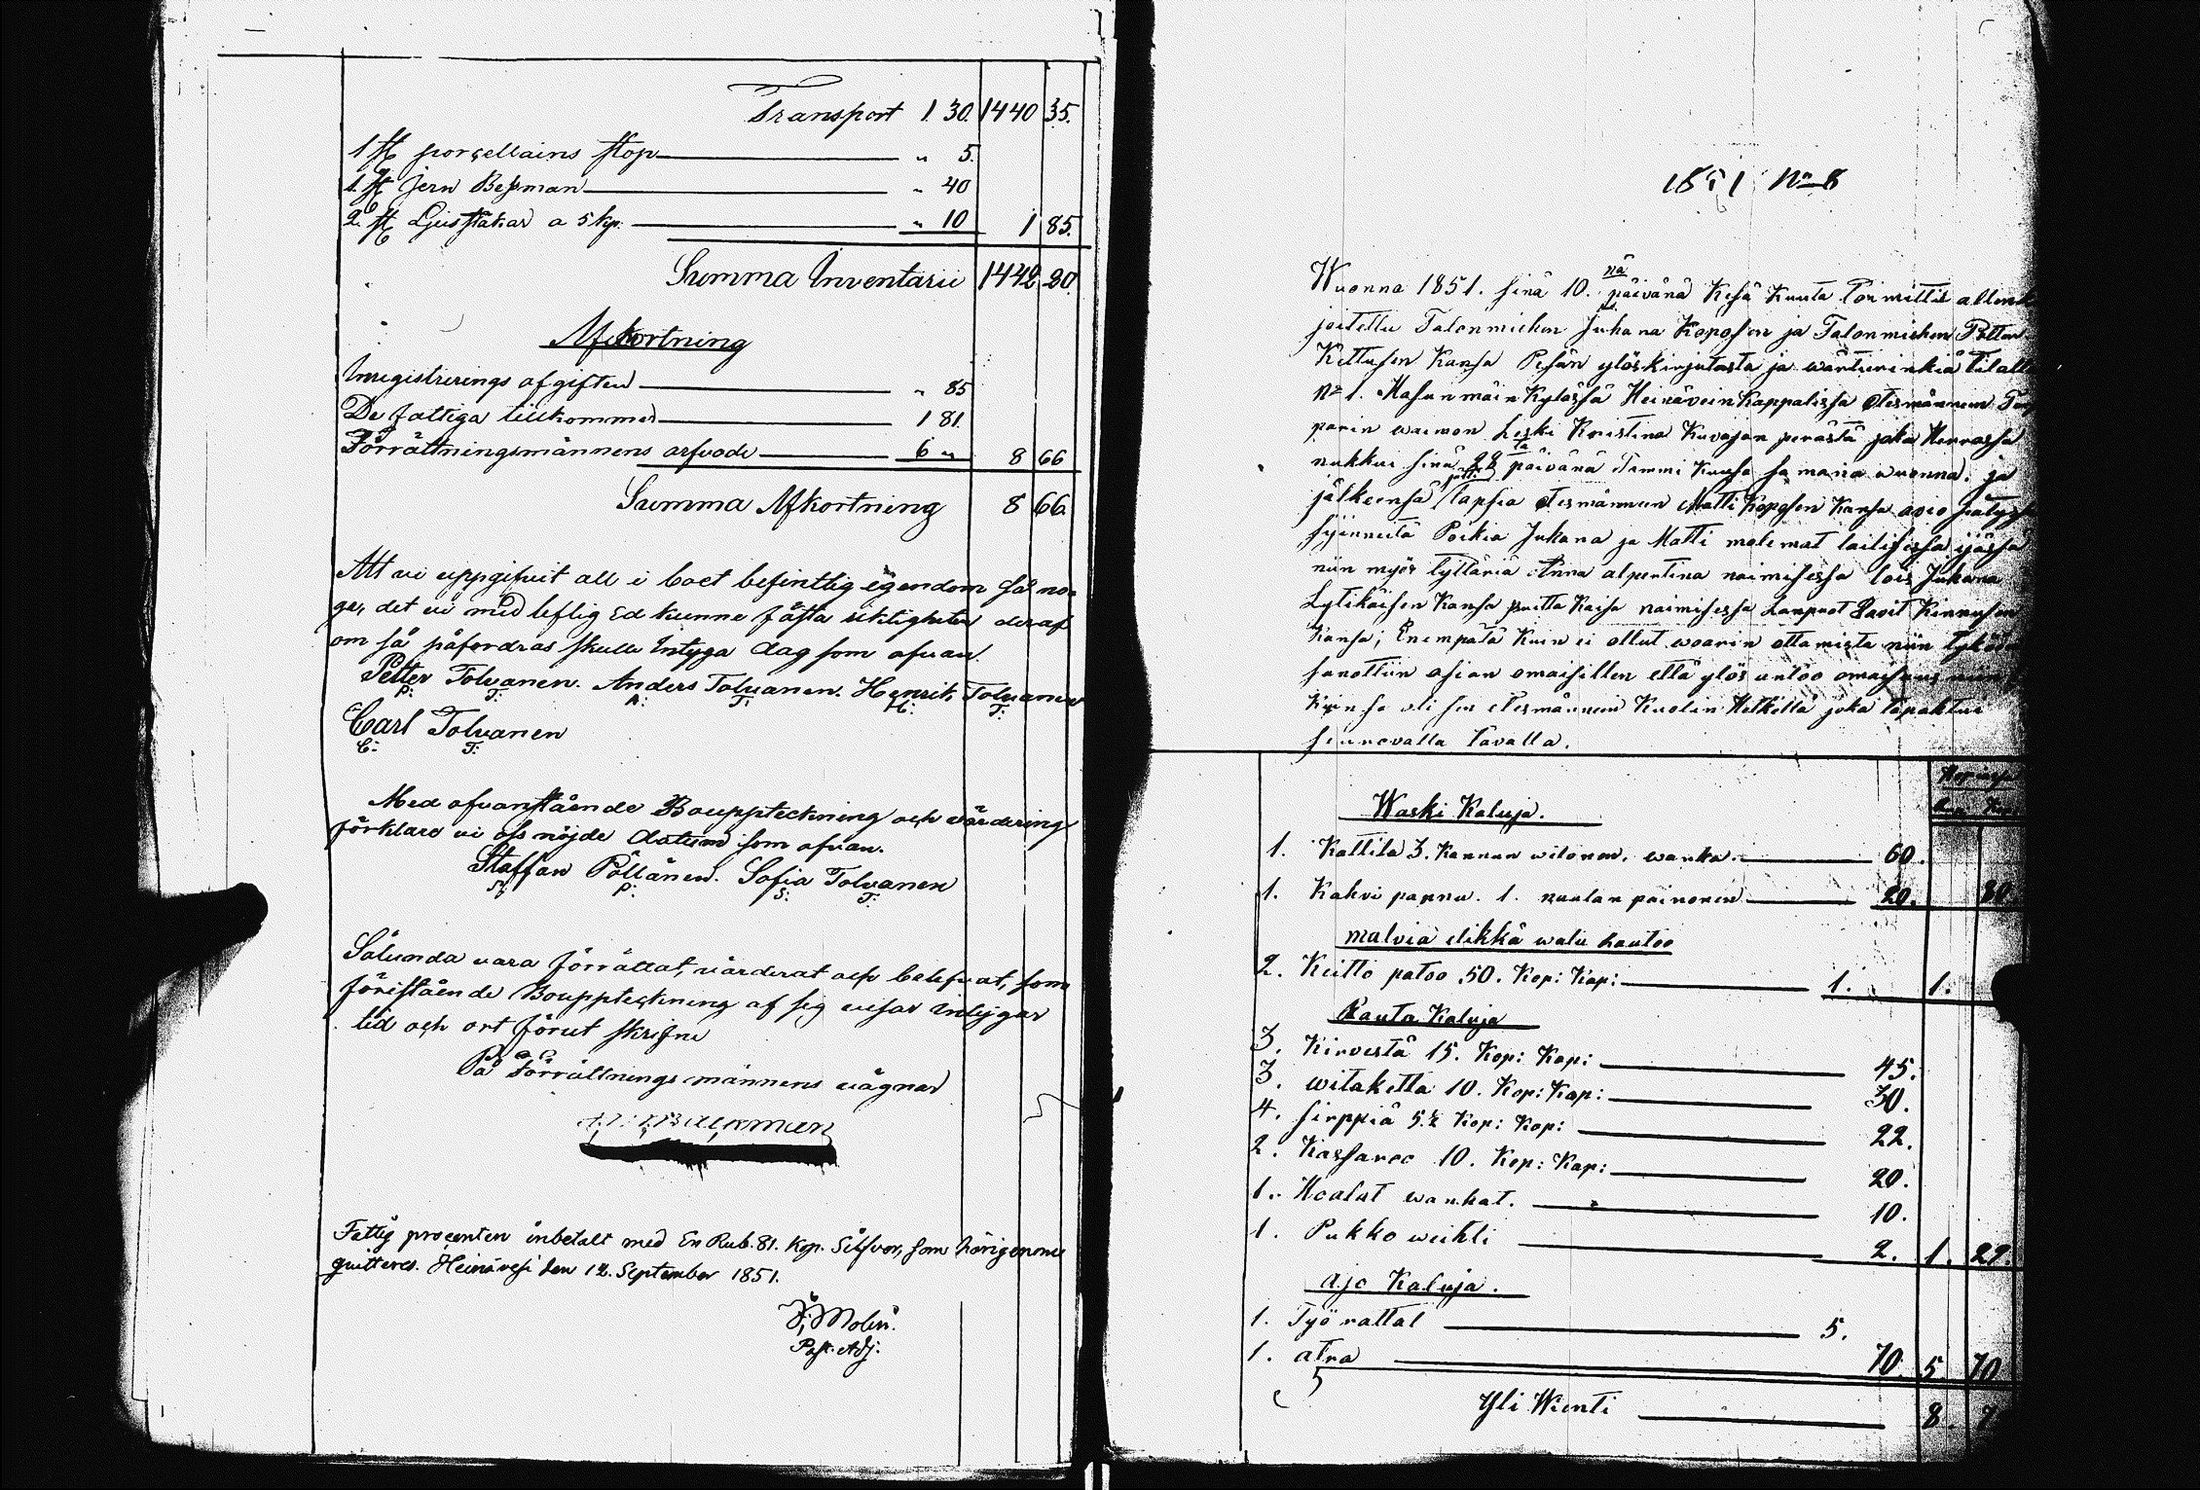 Transport 1. 30. 1440 35.
1 st porcellains stop " 5.
1. st Jern Bessman " 40
2. st Ljusstakar a 5 kp. " 10 1 85.
Summa Inventarii 1442 20.
Afkortning
Inregistrerings afgiften " 85
De fattiga tillkommer 1 81.
Förrättningsmännens arfvode 6 " 8 66
Summa Afkortning 8 66.
Att vi uppgifvit all i boet befintlig egendom så no-
ga, det vi med leflig Ed kunne fästa riktigheten deraf
om så påfordras skulle Intyga dag som ofvan.
Petter Tolvanen. Anders Tolvanen. Henrik Tolvanen
P: T: A: T: H: T:
Carl Tolvanen
C: T:
Med ofvanstående Bouppteckning och värdering
förklare vi oss nöjde datum som ofvan.
Staffan Pöllänen. Sofia Tolvanen
S: P: S: T:
Sålunda vara förrättat, värderat och belefvat, som
förestående Bouppteckning af sig visar intygar
tid och ort förut skrifne
På Förrättnings männens vägnar
Fattig procenten inbetalt med En Rub. 81. Kop. Silfver, som härigenom
quitteras. Heinävesi den 12. September 1851.
Molin.
Past. Adj.
1851 No 8
Wuonna 1851. sinä 10. nä päivänä Kesä Kuuta Toimittit
joitettu Talonmiehen Juhana Koposen ja Talonmiehen Petter
Kettusen Kansa Pesän ylöskirjutusta ja wärtierinkiä tilalla
No 1. Hasunmäin Kylässä Heinävein Kappalissa Edesmännen
parin waimon Leski Kristina Kuvajan perästä joka Herrassa
nukkui sinä 22 ta päivänä Tammi Kuusa samana wuonna; ja
jälkeensä jätti lapsia Edesmännen Matti Koposen Kansa avio
syinneitä Poikia Juhana ja Matti molemat lailisessa ijässä
niin myös tyttäriä Anna alpertina naimisessa lois Juhana
Lytikäisen Kansa Priitta Kaisa naimisessa Lampuot Tavit Kinnusen
Kansa; Enempätä Kuin ei ollut waarin ottamista niin
sanottiin asian omaisillen että ylös antoo omaisuus
Kuin se oli sen Edesmännen Kuolin Hetkellä joka tapahtui
seuraavalla tavalla.
Waski Kaluja.
1. Kattila 3. Kannun wetonen, wanha. 60.
1. Kahvi pannu. 1. naulan painonen 20. 80
malvia elikkä walu rautoo
2. Keitto patoo 50. Kop: Kap: 1. 1.
Rauta Kaluja
3. Kirvestä 15. Kop: Kap: 45.
3. witaketta 10. Kop: Kap: 30.
4. sirppiä 5 ½ Kop: Kap: 22.
2. Kassaroo 10. Kop: Kap: 20.
1. Hoalut wanhat. 10.
1. Pukko weihti 2. 1. 29.
ajo Kaluja.
1. Työ rattat 5.
1. atra 70. 5 70
Yli Wienti 8.